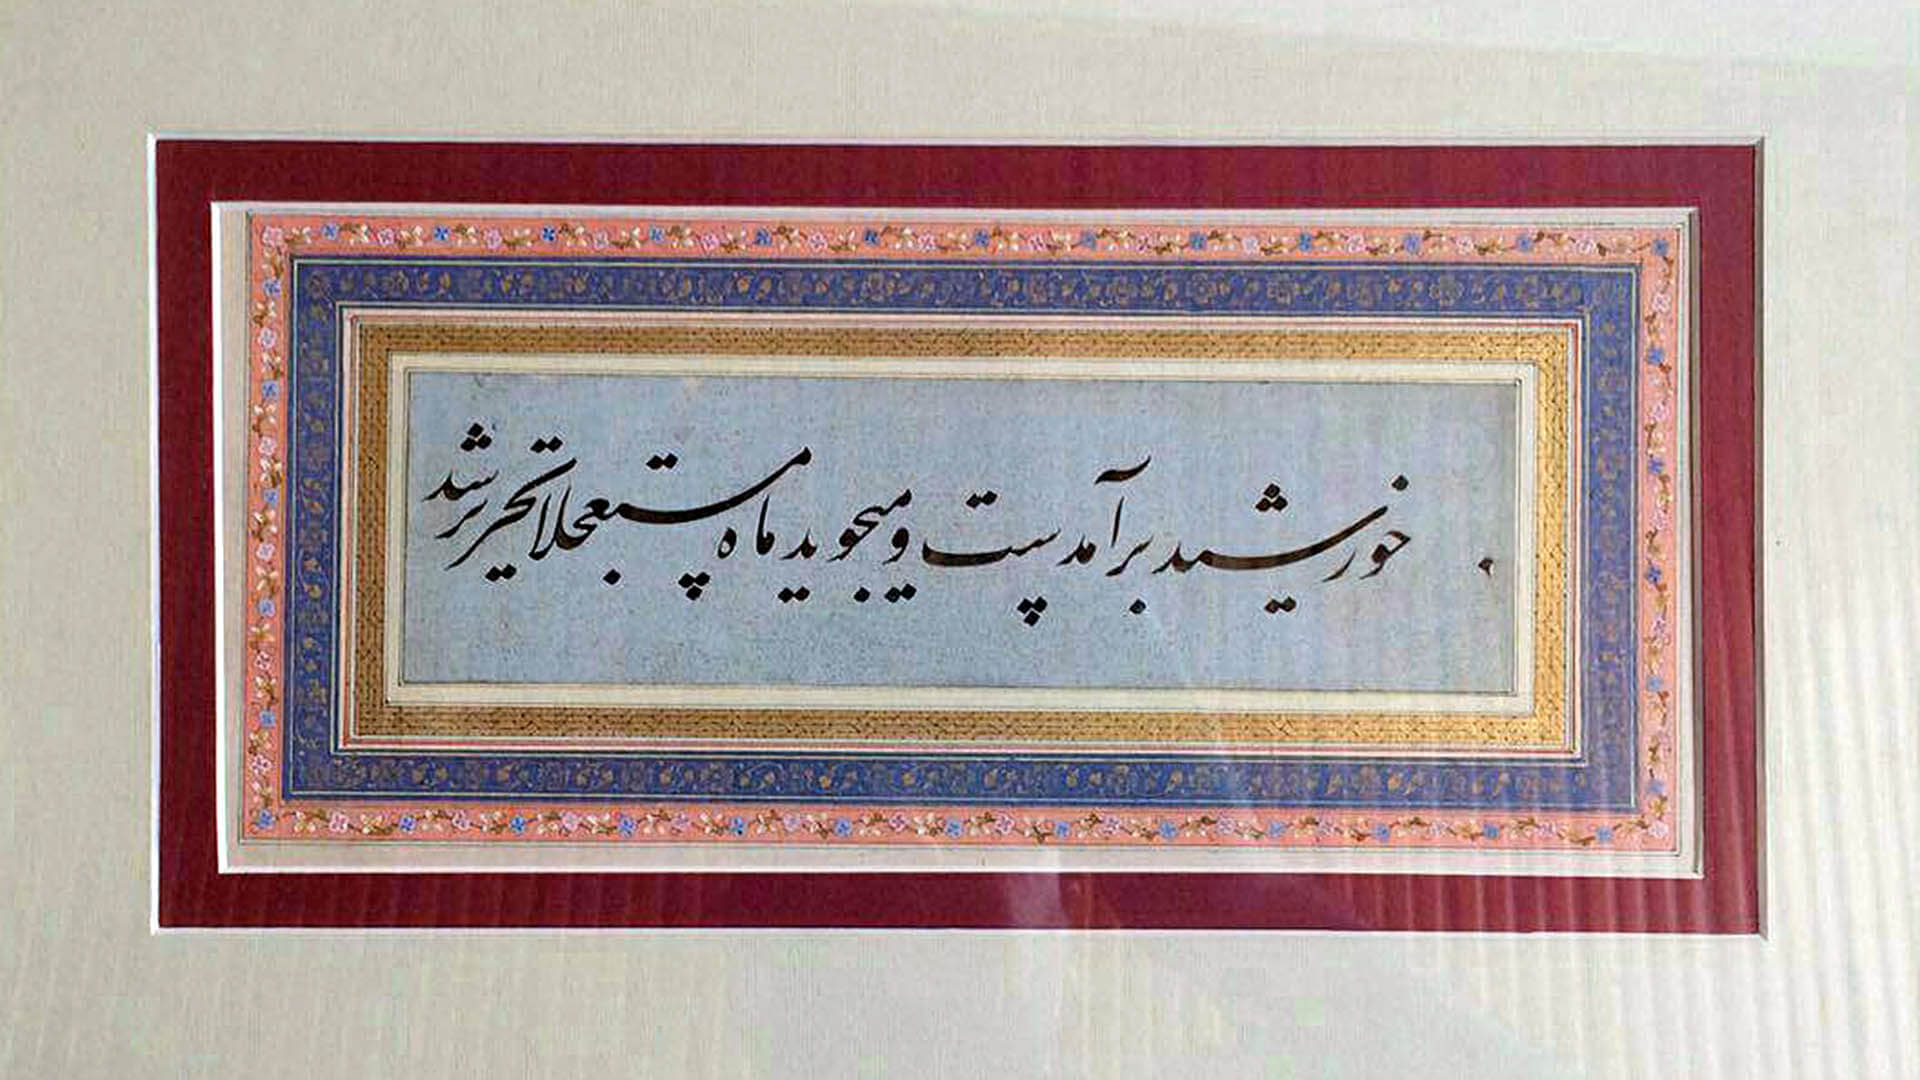 خورشید برآمدست و میجوید ماه مستعجلا تحریر شد